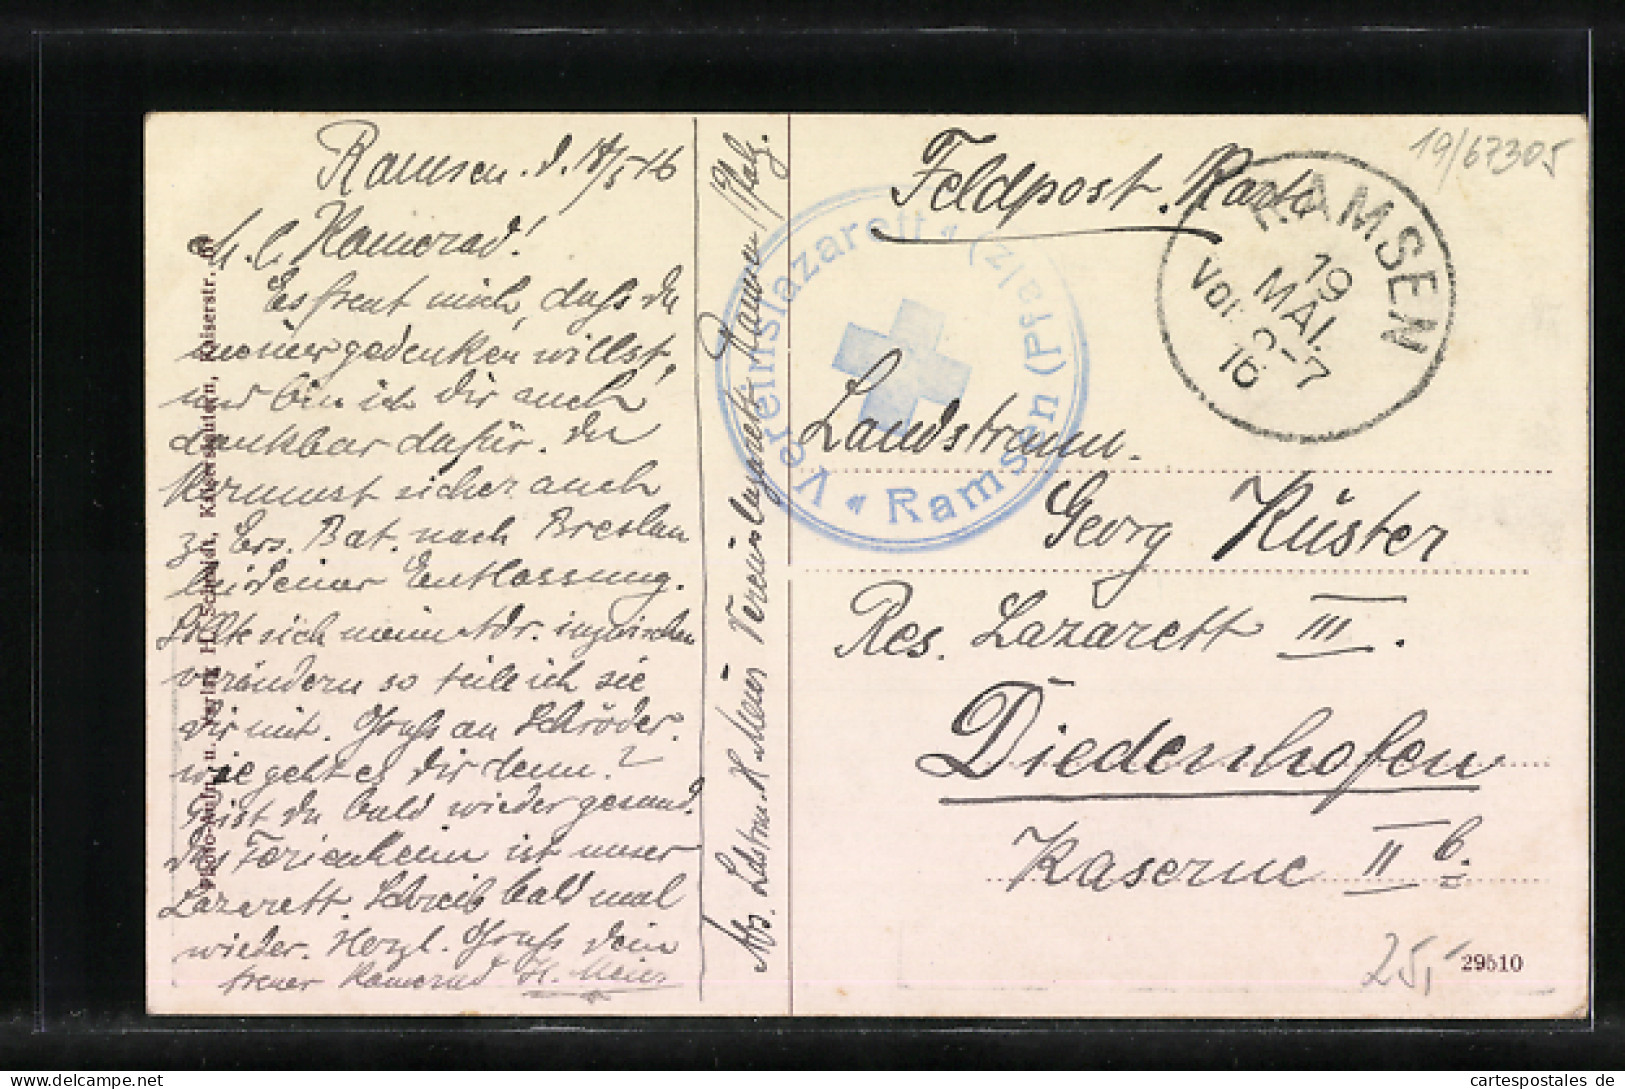 Ramsen. d. 18/5 16
M. l. Kamerad!
Es freut mich, dass du
meiner gedenken willst,
und bin ich dir auch
dankbar dafür. Du
kommst sicher auch
z. Ers. Bat. nach Breslau
bei deiner Entlassung.
Sollte sich meine Adr. inzwischen
verändern so teile ich sie
dir mit. Gruss an Schröder.
wie geht es dir denn?
bist du bald wieder gesund.
das Ferienheim ist unser
Lazarett. Schreib bald mal
wieder. Herzl. Gruss dein
treuer Kamerad H. Meier
Photo-Aufn. u. Verlag H. Schmidt, Kaiserslautern, Kaiserstr.
Abs. Ldstrm. H. Meier Vereinslazarett Ramsen /Pfalz.
Feldpost. Karte
Vereinslazarett * Ramsen (Pfalz) *
RAMSEN
19
MAI.
Vor. 6-7
16
19/67305
Landstrum.
Georg Küster
Res. Lazarett III.
Diedenhofen
Kaserne II b.
25,-
29510
cartespostales.de